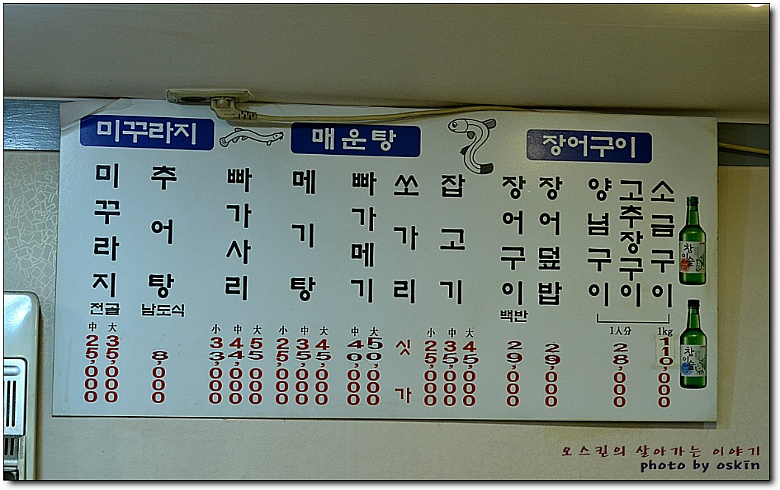 미꾸라지
매운탕
장어구이
미꾸라지
전골
中 25,000
大 35,000
추어탕
남도식
8,000
빠가사리
小 33,000
中 44,000
大 55,000
메기탕
小 25,000
中 35,000
大 45,000
빠가메기
中 40,000
大 50,000
쏘가리
싯가
잡고기
小 25,000
中 35,000
大 45,000
장어구이
백반
29,000
장어덮밥
29,000
양념구이
고추장구이
소금구이
1人分 28,000
1kg 110,000
참이슬
참이슬
오스킨의 살아가는 이야기
photo by oskin